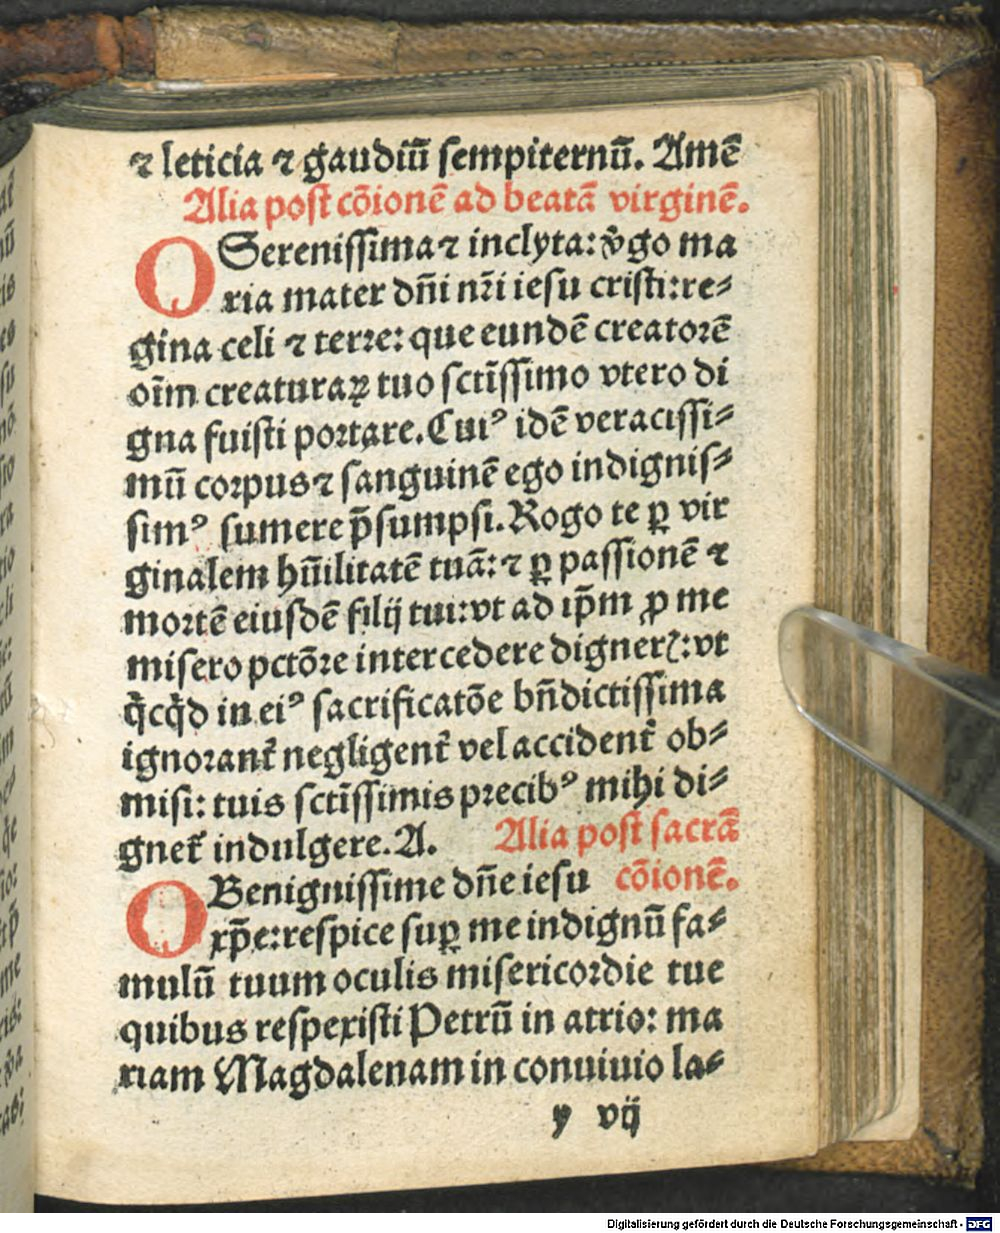 ⁊ leticia ⁊ gaudiū ſempiternū. Amē
Alia poſt cōionē ad beatā virginē.
O Sereniſſima ⁊ inclyta: v̄go ma
ria mater dn̄i nr̄i ieſu criſti: re⸗
gina celi ⁊ terre: que eundē creatorē
oīm creaturaꝝ tuo ſctīſſimo vtero di
gna fuiſti portare. Cuiꝰ idē veraciſſi⸗
mū corpus ⁊ ſanguinē ego indigniſ⸗
ſimꝰ ſumere p̄ſumpſi. Rogo te ꝑ vir
ginalem hūilitatē tuā: ⁊ ꝑ paſſionē ⁊
mortē eiuſdē filij tui: vt ad ip̄m ꝓ me
miſero pctōre intercedere dignerꝭ: vt
q̄cq̄d in eiꝰ ſacrificatōe bn̄dictiſſima
ignorant̄ negligent̄ vel accident̄ ob⸗
miſi: tuis ſctīſſimis precibꝰ mihi di⸗
gnet̄ indulgere. A. Alia poſt ſacrā
O Benigniſſime dn̄e ieſu cōionē.
xp̄e: reſpice ſuꝑ me indignū fa⸗
mulū tuum oculis miſericordie tue
quibus reſpexiſti Petrū in atrio: ma
riam Magdalenam in conuiuio la⸗
y vij
Digitalisierung gefördert durch die Deutsche Forschungsgemeinschaft - DFG